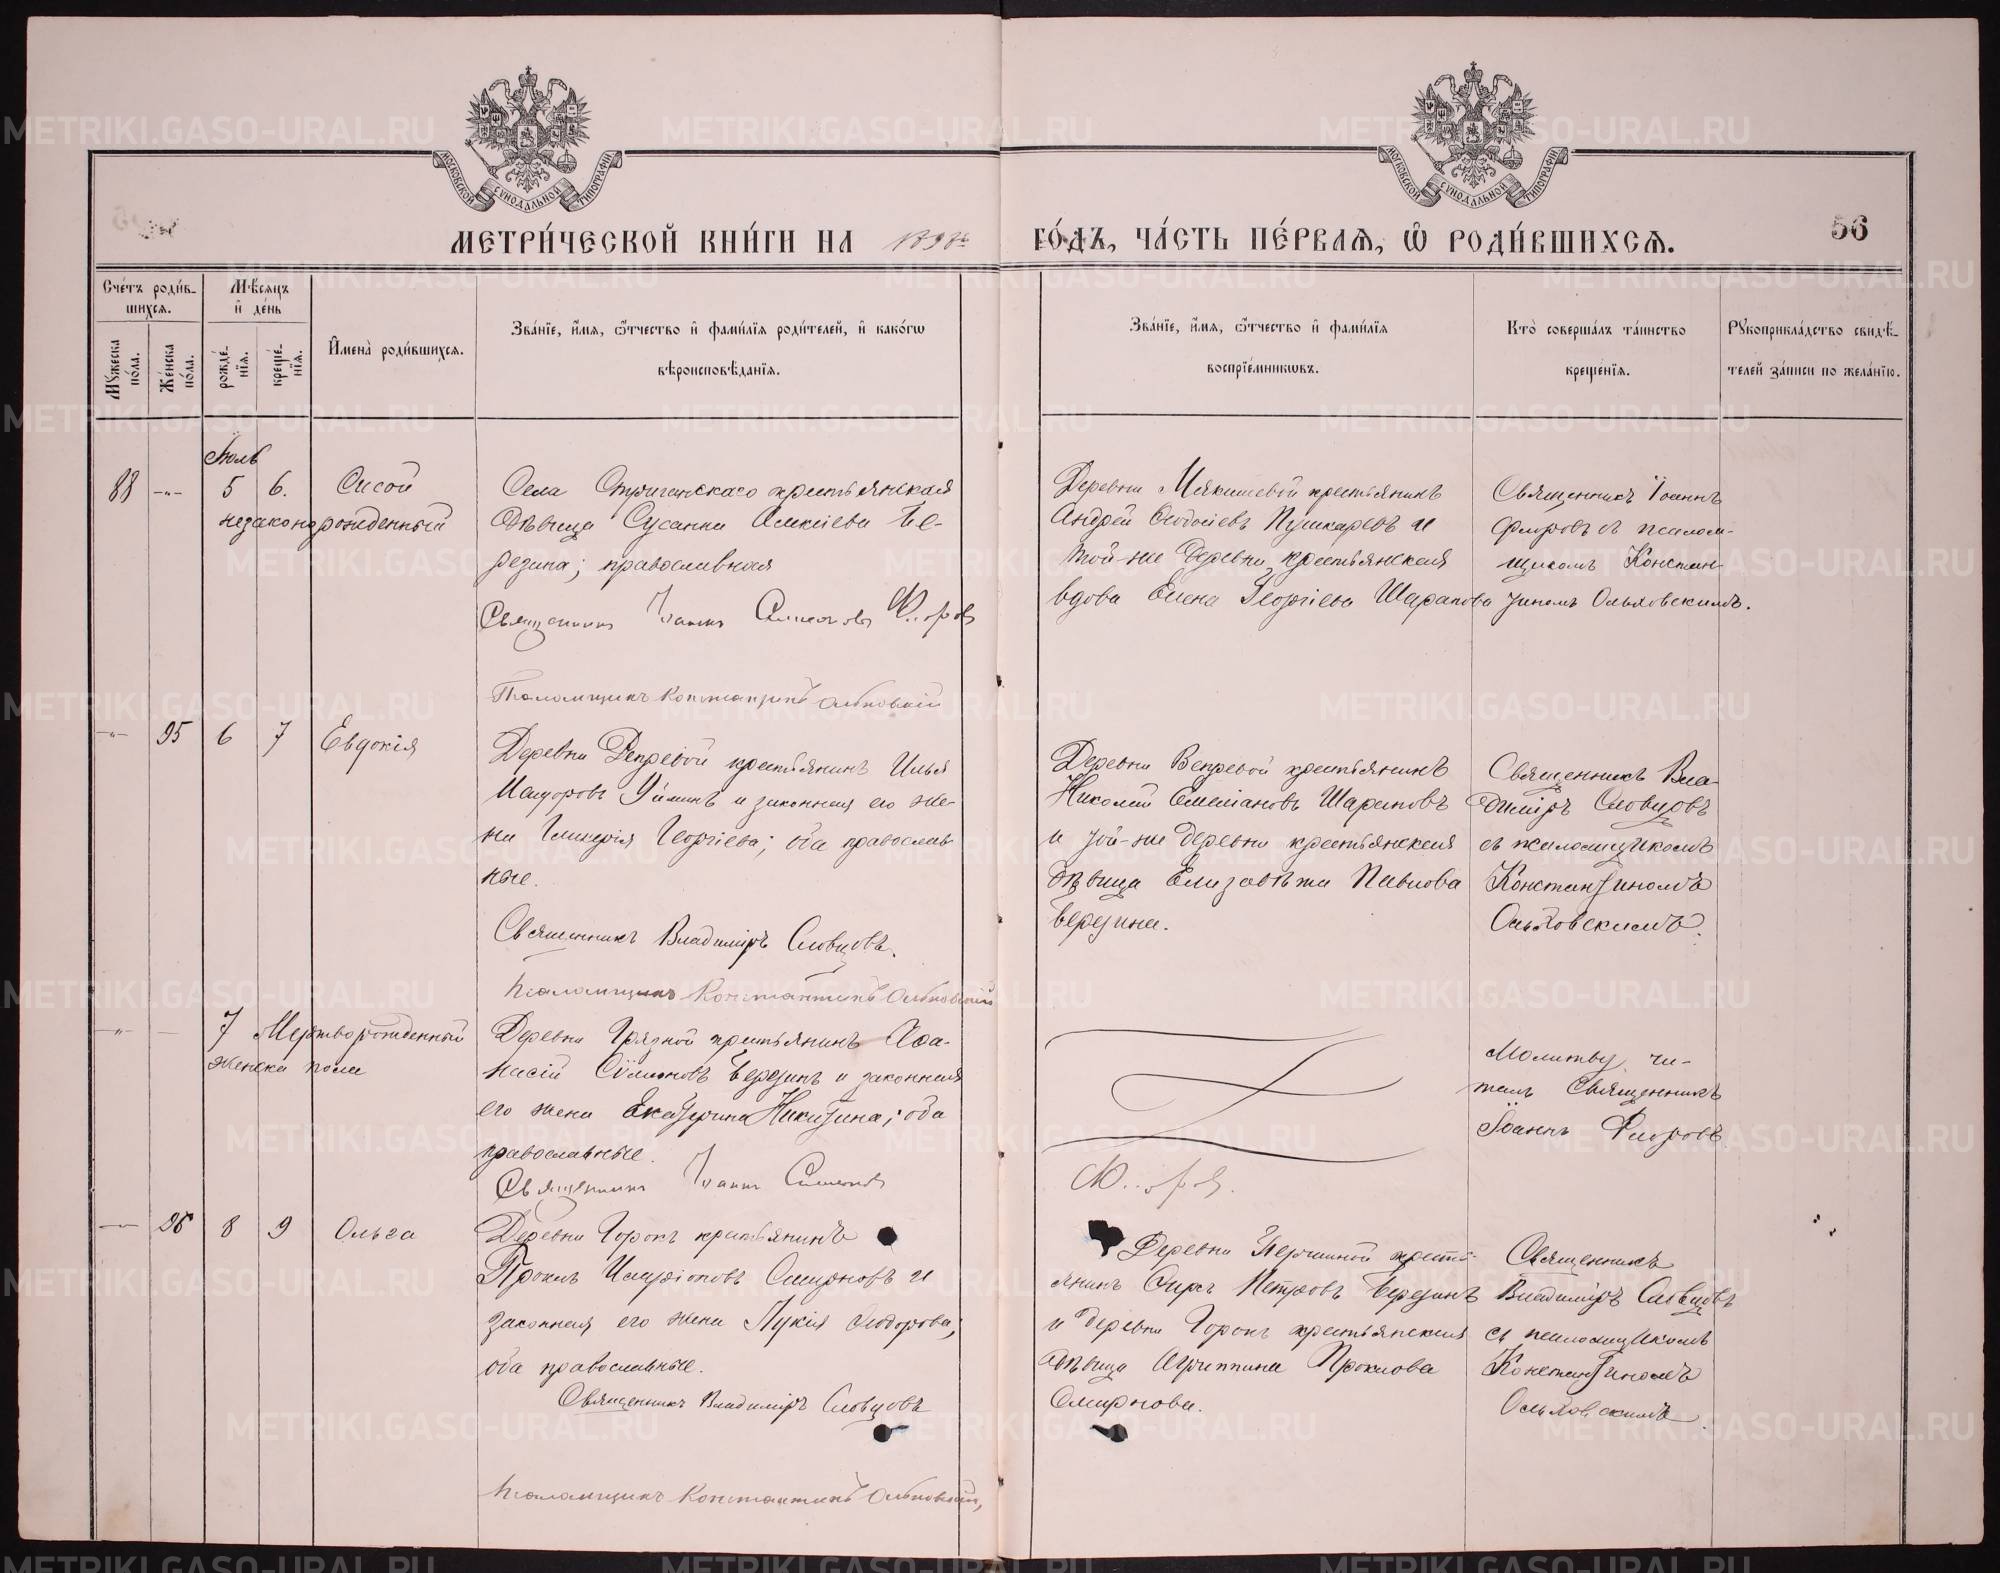 МОСКОВСКОЙ СѴНОДАЛЬНОЙ ТИПОГРАФІИ
МОСКОВСКОЙ СѴНОДАЛЬНОЙ ТИПОГРАФІИ
56
МЕТРИ́ЧЕСКОЙ КНИ́ГИ НА ГО́ДЪ, ЧА́СТЬ ПЕ́РВАѦ, Ѡ҆ РОДИ́ВШИХСѦ.
Сче́тъ роди́в-
шихсѧ.
Мѣ́сѧцъ
и҆ де́нь
Мꙋ́жеска по́ла.
Же́нска по́ла.
рожде́-
нїѧ.
креще́-
нїѧ.
И҆мена̀ роди́вшихсѧ.
Зва́нїе, и҆́мѧ, ѻ҆́тчество и҆ фами́лїѧ роди́телей, и҆ како́гѡ
вѣроисповѣ́данїѧ.
Зва́нїе, и҆́мѧ, ѻ҆́тчество и҆ фами́лїѧ
воспрїе́мникѡвъ.
Кто̀ соверша́лъ та́инство
креще́нїѧ.
Рꙋкоприкла́дство свидѣ́-
телей за́писи по жела́нїю.
Іюль
88 -„- 5 6. Сисой
незаконорожденный
Села Стриганскаго крестьянская
дѣвица Сусанна Алексіева Бе-
резина; православная
Священник Іоанн Симеонов Флоров
Псаломщикъ Константинъ Ольховскій
Деревни Мякишевой крестьянинъ
Андрей Ѳеодосіевъ Пушкаревъ и
той-же деревни крестьянская
вдова Елена Георгіева Шарапова
Священникъ Іоаннъ
Флоровъ съ псалом-
щикомъ Констан-
тиномъ Ольховскимъ.
-„- 95 6 7 Евдокія
Деревни Вепревой крестьянинъ Илья
Уйминъ и законная его же-
на Гликерія Георгіева; оба православ-
ные.
Священникъ Владиміръ Словцовъ.
Псаломщикъ Константинъ Ольховскій
Деревни Вепревой крестьянинъ
Николай Емеліановъ Шараповъ
и той-же деревни крестьянская
дѣвица Елизавѣта Павлова
Березина.
Священникъ Вла-
диміръ Словцовъ
съ псаломщикомъ
Константиномъ
Ольховскимъ.
-„- — 7 Мертворожденный
женска пола
Деревни Грязной крестьянинъ Аѳа-
насій Сѵмеоновъ Березинъ и законная
его жена Екатерина Никитина; оба
православные.
Священник Іоанн Симеонов
Флоров.
Молитву чи-
талъ Священникъ
Іоаннъ Флоровъ
— 96 8 9 Ольга
Деревни Горокъ крестьянинъ
Проклъ Иларіоновъ Смирновъ и
законная его жена Лукія Ѳеодорова;
оба православные.
Священникъ Владиміръ Словцовъ
Псаломщикъ Константинъ Ольховскій,
Деревни Першиной кресть-
янинъ Сиръ Петровъ Березинъ
и деревни Горокъ крестьянская
дѣвица Агриппина Проклова
Смирнова.
Священникъ
Владиміръ Словцовъ
съ псаломщикомъ
Константиномъ
Ольховскимъ.